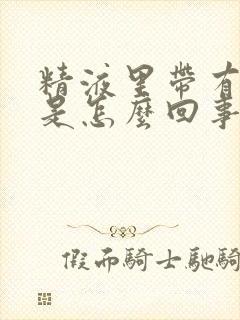 精液里帶有
是怎麼回事
假而騎士馳騎